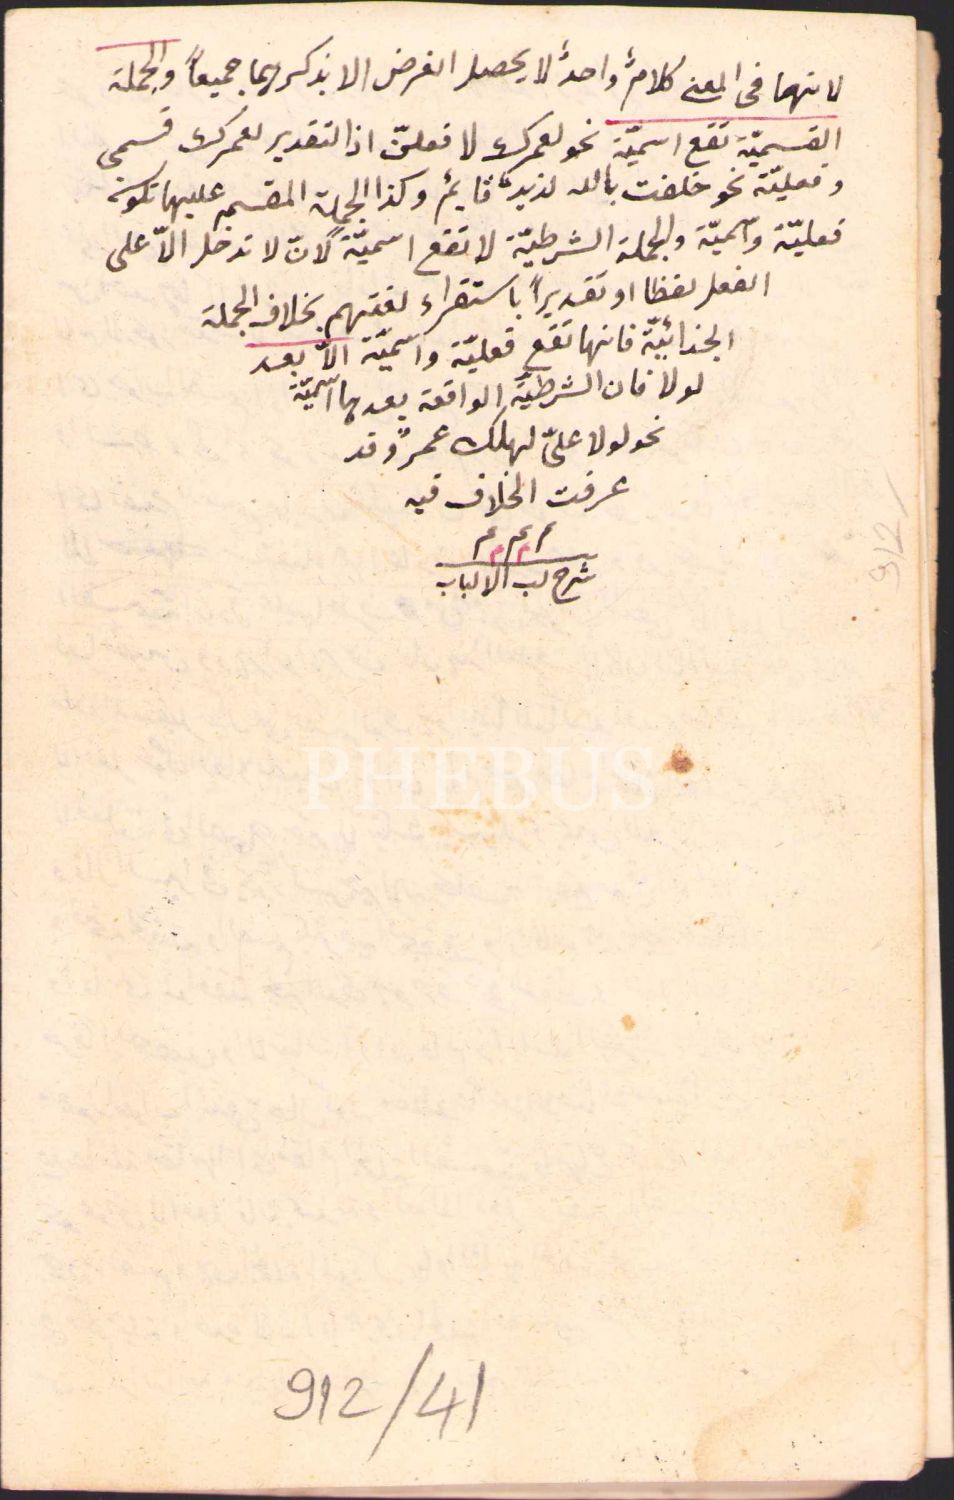 لانهما فى المعنى كلامٌ واحدٌ لا يحصل الغرض الا بذكرهما جميعاً والجملة
القسميّة تقع اسميّة نحو لعمرك لا فعلنّ اذ التقدير لعمرك قسمى
وفعليّة نحو حلفت بالله لزيدٌ قايمٌ وكذا الجملة المقسم عليها تكون
فعليّة واسميّة والجملة الشرطيّة لا تقع اسميّة لانّ لا تدخل الاّ على
الفعل لفظا او تقديراً باستقراء لغتهم بخلاف الجملة
الجزائيّة فانها تقع فعليّة واسميّة الاّ بعد
لولا فان الشرطيّة الواقعة بعدها اسميّة
نحو لولا علىّ لهلك عمرٌ وقد
عرفت الخلاف فيه
م م م
شرح لب الالباب
912
PHEBUS
912/41